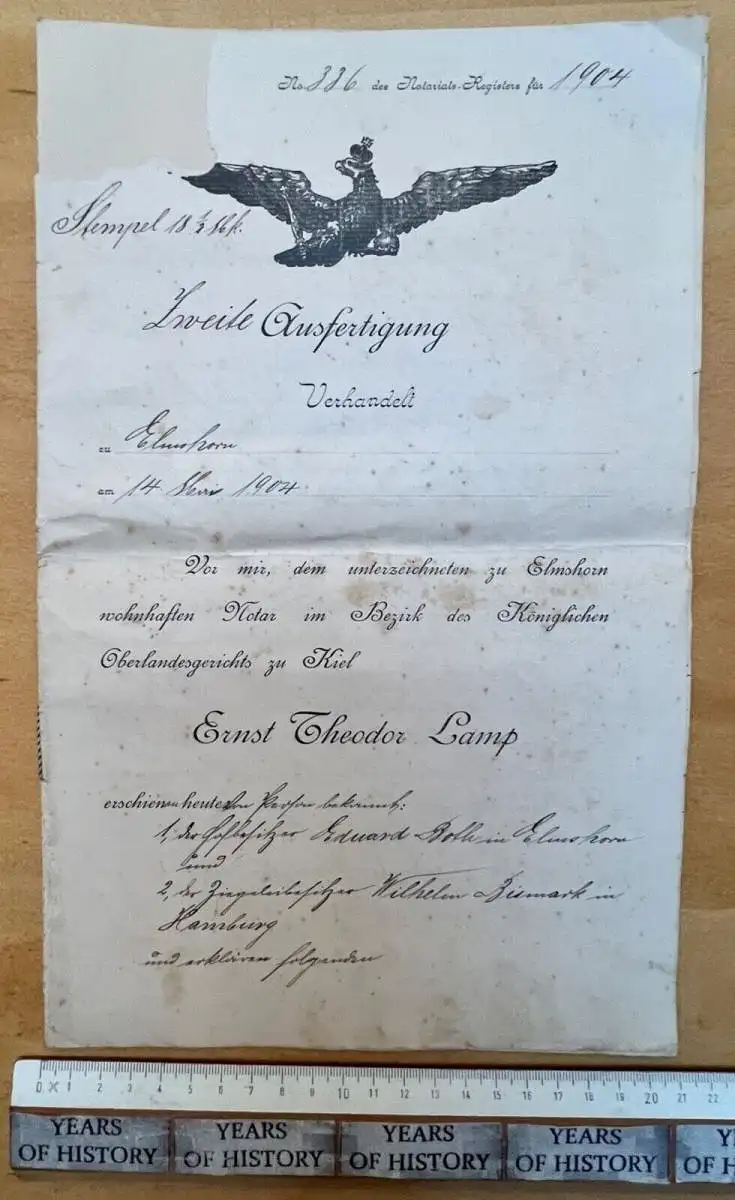 No. 336 des Notariats-Registers für 1904
Stempel 18 1/2 Mk.
Zweite Ausfertigung
Verhandelt
zu Elmshorn
am 14 Mai 1904
Vor mir, dem unterzeichneten zu Elmshorn
wohnhaften Notar im Bezirk des Königlichen
Oberlandesgerichts zu Kiel
Ernst Theodor Lamp
erschienen heute von Person bekannt:
1, der Hofbesitzer Eduard Both in Elmshorn
und
2, der Ziegeleibesitzer Wilhelm Bismark in
Hamburg
und erklären folgenden
0 1 2 3 4 5 6 7 8 9 10 11 12 13 14 15 16 17 18 19 20 21 22
YEARS OF HISTORY YEARS OF HISTORY YEARS OF HISTORY YEARS OF HISTORY